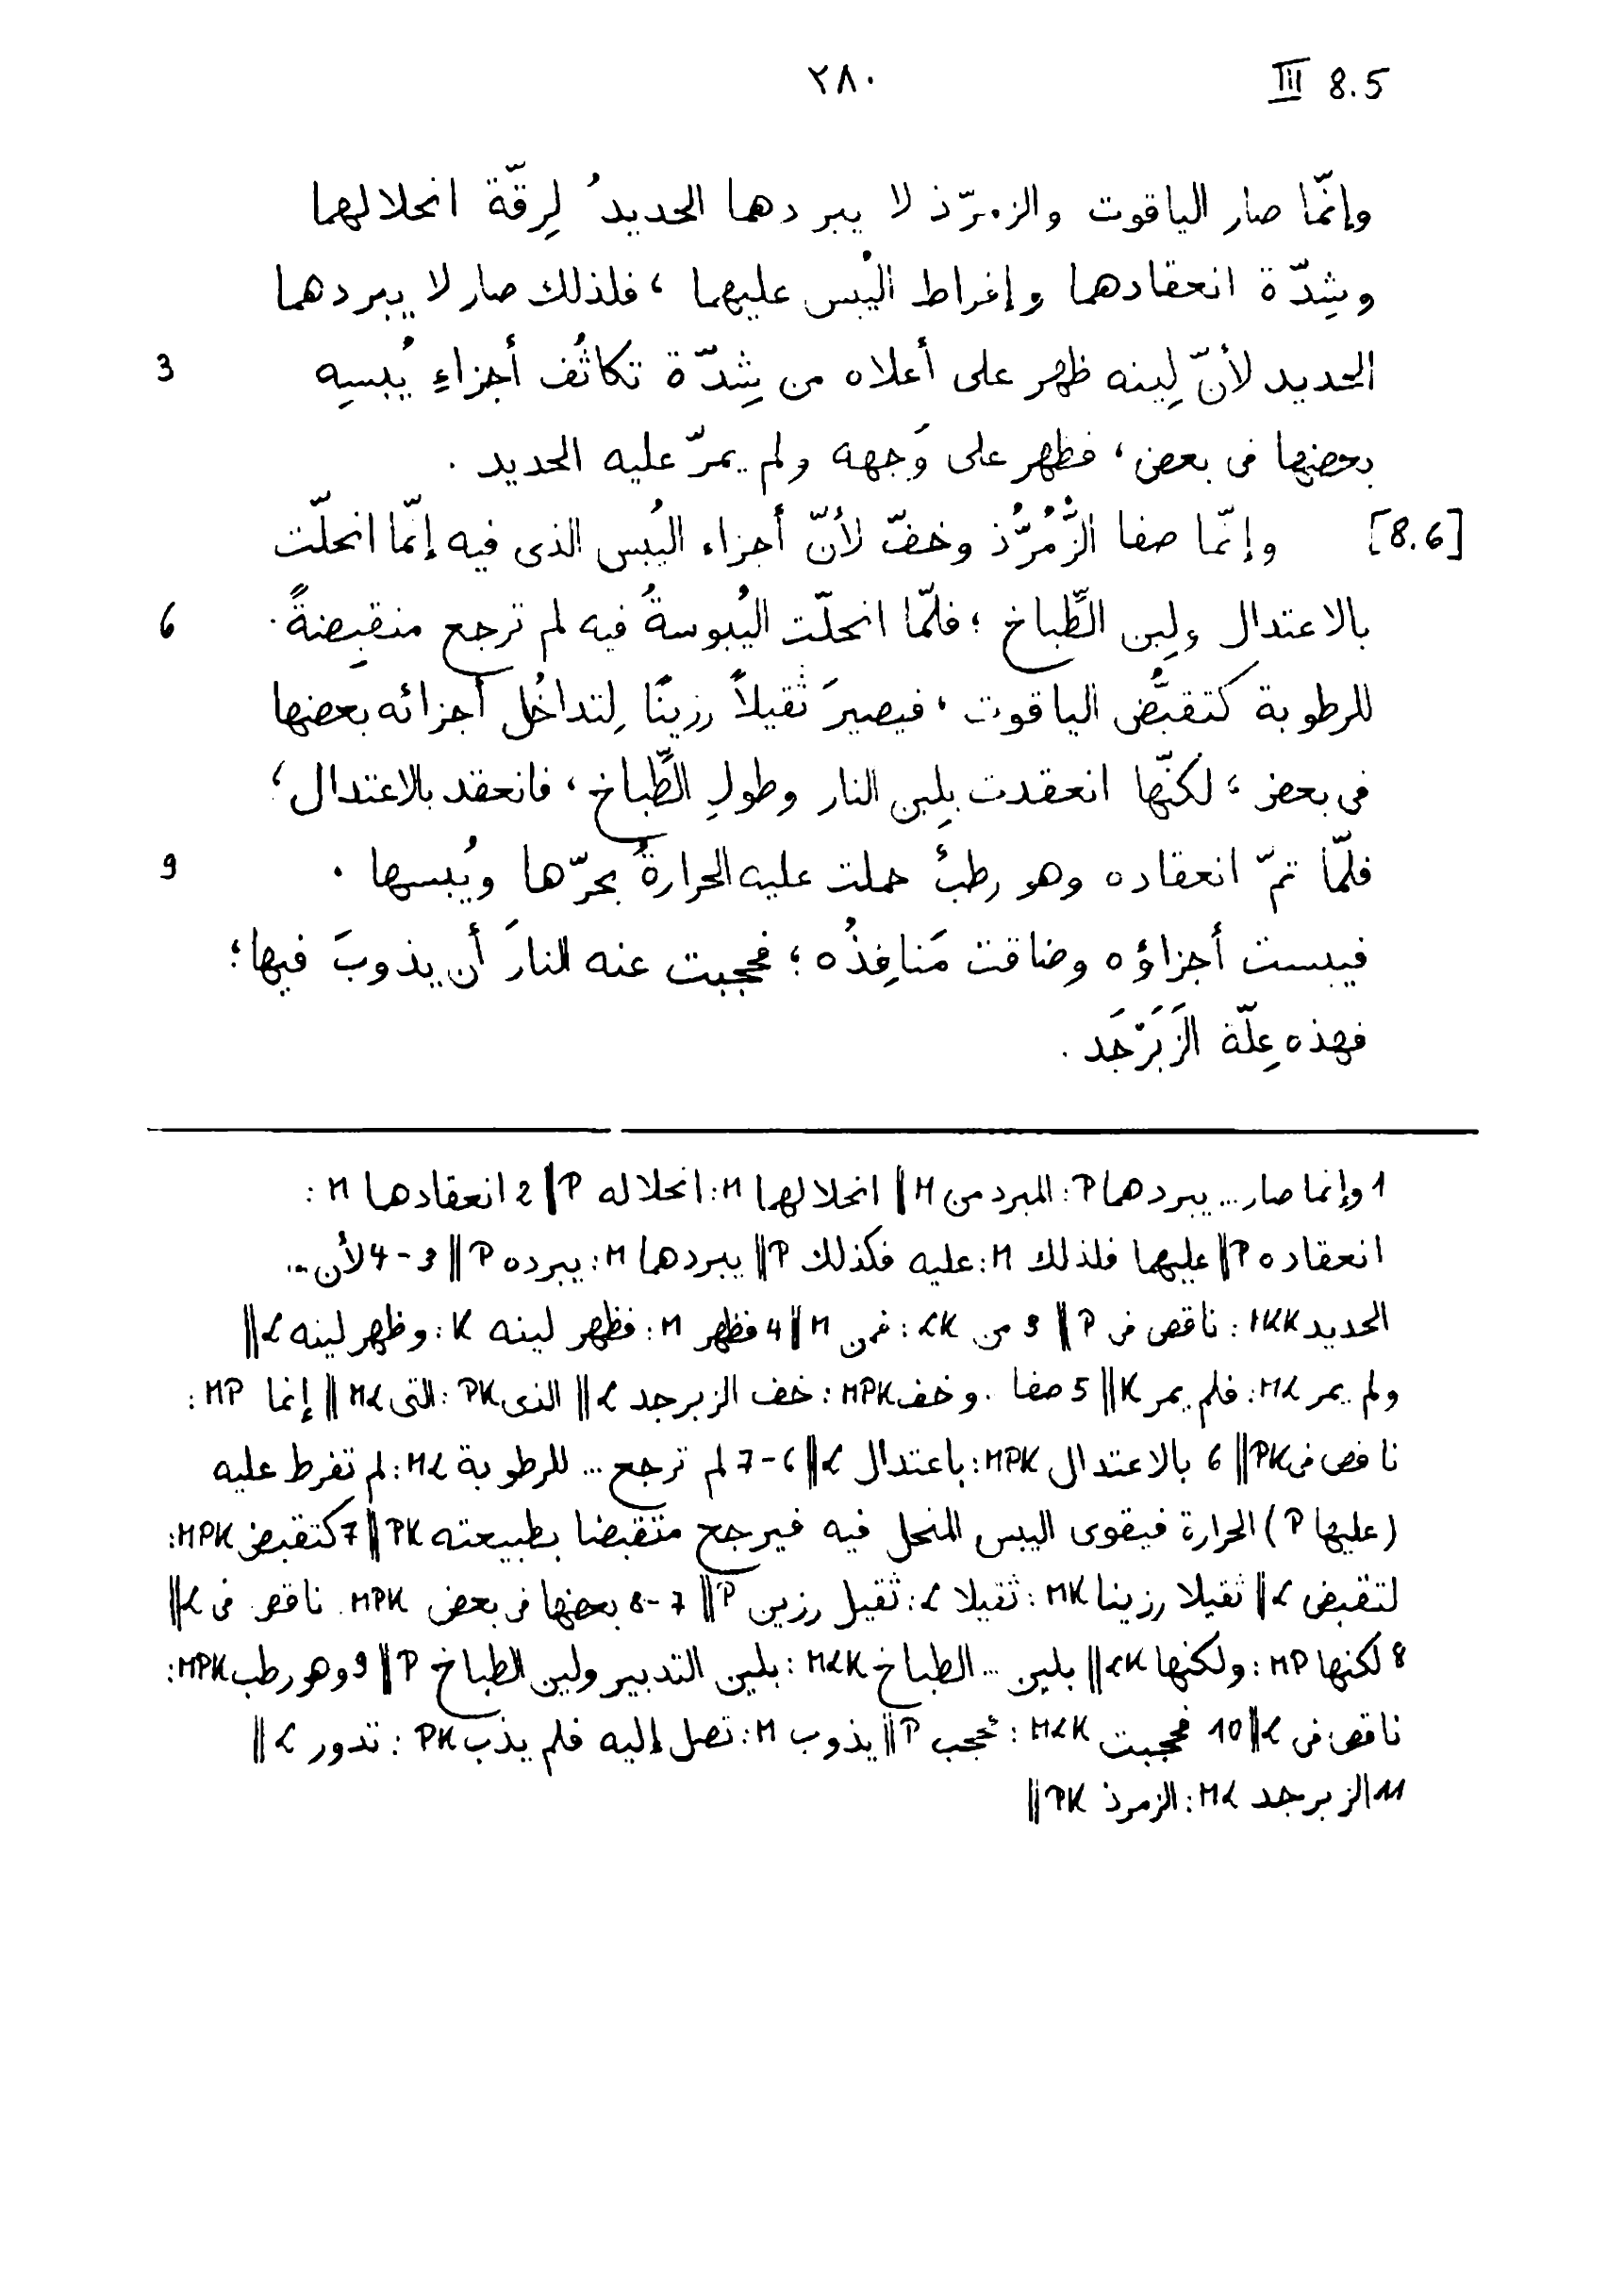 III 8.5 ٢٨٠
وإنّما صار الياقوت والزمرّذ لا يبردهما الحديدُ لِرقّة انحلالهما
وشِدّة انعقادهما وإفراط اليُبس عليهما ، فلذلك صار لا يبردهما
الحديد لأنّ لِينه ظهر على أعلاه من شِدّة تكاثُف أجزاءِ يُبسِه 3
بعضها فى بعض ، فظهر على وَجهه ولم يمرّ عليه الحديد .
[8.6] وإنّما صفا الزُّمُرُّذ وخفّ لأنّ أجزاء اليُبس الذى فيه إنّما انحلّت
بالاعتدال ولِين الطِّباخ ؛ فلمّا انحلّت اليُبوسةُ فيه لم ترجع منقبِضةً 6
للرطوبة كتقبُّض الياقوت ، فيصيرَ ثقيلاً رزينًا لِتداخُل أجزائه بعضها
فى بعض ؛ لكنّها انعقدت بلِين النار وطولِ الطِّباخ ، فانعقد بالاعتدال ؛
فلمّا تمّ انعقاده وهو رطبٌ حملت عليه الحرارةُ بحرّها ويُبسها . 9
فيبست أجزاؤه وضاقت مَنافِذُه ؛ فحجبت عنه النارَ أن يذوبَ فيها ؛
فهذه عِلّة الزَبَرْجَد .
1 وإنما صار ... يبردهما P : المبرد من M || انحلالهما M : انحلاله P || 2 انعقادهما M :
انعقاده P || عليهما فلذلك M : عليه فكذلك P || يبردهما M : يبرده P || 3-4 لأن ...
الحديد MLK : ناقص فى P || 3 من LK : فمن M || 4 فظهر M : فظهر لينه K : وظهر لينه L ||
ولم يمر ML : فلم يمر K || 5 صفا . وخف MPK : خف الزبرجد L || الذى PK : التى ML || إنما MP :
ناقص فى PK || 6 بالاعتدال MPK : باعتدال L || 6-7 لم ترجع ... للرطوبة ML : لم تفرط عليه
(عليها P) الحرارة فيقوى اليبس المنحل فيه فيرجع متقبضا بطبيعته PK || 7 كتقبض MPK :
لتقبض L || ثقيلا رزينا MK : ثقيلا L : ثقيل رزين P || 7-8 بعضها فى بعض MPK . ناقص فى L ||
8 لكنها MP : ولكنها LK || بلين ... الطباخ MLK : بلين التدبير ولين الطباخ P || 9 وهو رطب MPK :
ناقص فى L || 10 فحجبت MLK : فحجب P || يذوب M : تصل إليه فلم يذب PK : تدور L ||
11 الزبرجد ML : الزمرذ PK ||